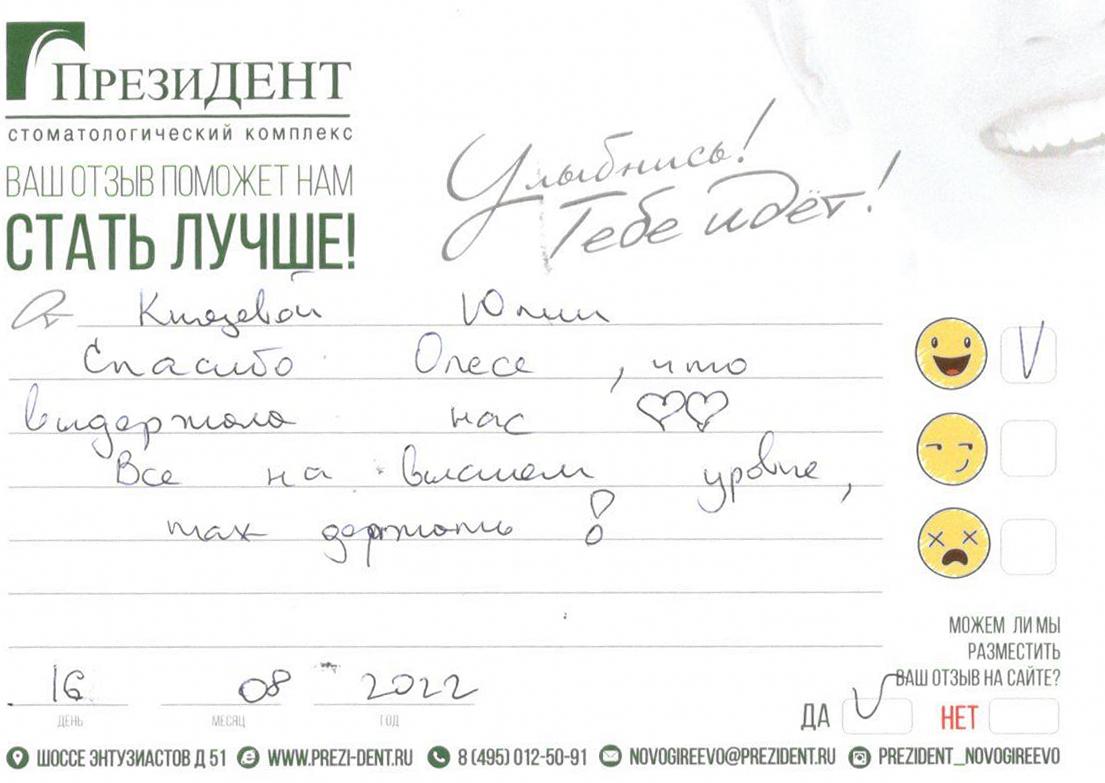 ПрезиДЕНТ
стоматологический комплекс
ВАШ ОТЗЫВ ПОМОЖЕТ НАМ
СТАТЬ ЛУЧШЕ!
Улыбнись!
Тебе идёт!
От Князевой Юлии
Спасибо Олесе, что
выдержала нас
Все на высшем уровне,
так держать!
16 08 2022
ДЕНЬ МЕСЯЦ ГОД
МОЖЕМ ЛИ МЫ
РАЗМЕСТИТЬ
ВАШ ОТЗЫВ НА САЙТЕ?
ДА НЕТ
ШОССЕ ЭНТУЗИАСТОВ Д 51 WWW.PREZI-DENT.RU 8 (495) 012-50-91 NOVOGIREEVO@PREZIDENT.RU PREZIDENT_NOVOGIREEVO